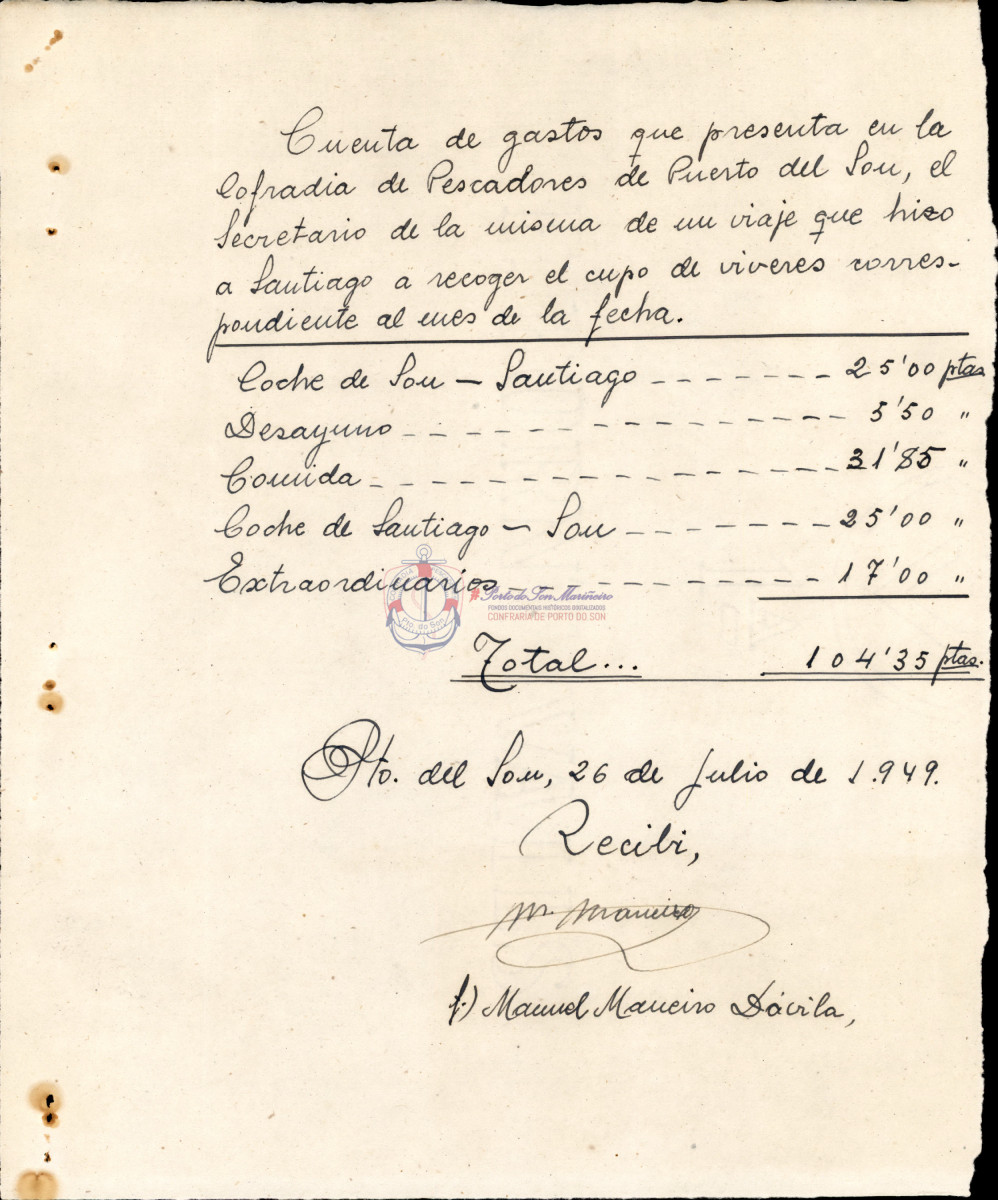 Cuenta de gastos que presenta en la
Cofradia de Pescadores de Puerto del Son, el
Secretario de la misma de un viaje que hizo
a Santiago a recoger el cupo de viveres corres-
pondiente al mes de la fecha.
Coche de Son - Santiago - - - - - - - 25'00 ptas
Desayuno - - - - - - - - - - - - - 5'50 "
Comida - - - - - - - - - - - - - 31'85 "
Coche de Santiago - Son - - - - - - - 25'00 "
Extraordinarios - - - - - - - - - - 17'00 "
#Porto do Son Mariñeiro
FONDOS DOCUMENTAIS HISTÓRICOS DIXITALIZADOS
CONFRARÍA DE PORTO DO SON
Pto. do Son
Total... 104'35 ptas.
Pto. del Son, 26 de Julio de 1.949.
Recibi,
M. Maneiro
f.) Manuel Maneiro Dávila,